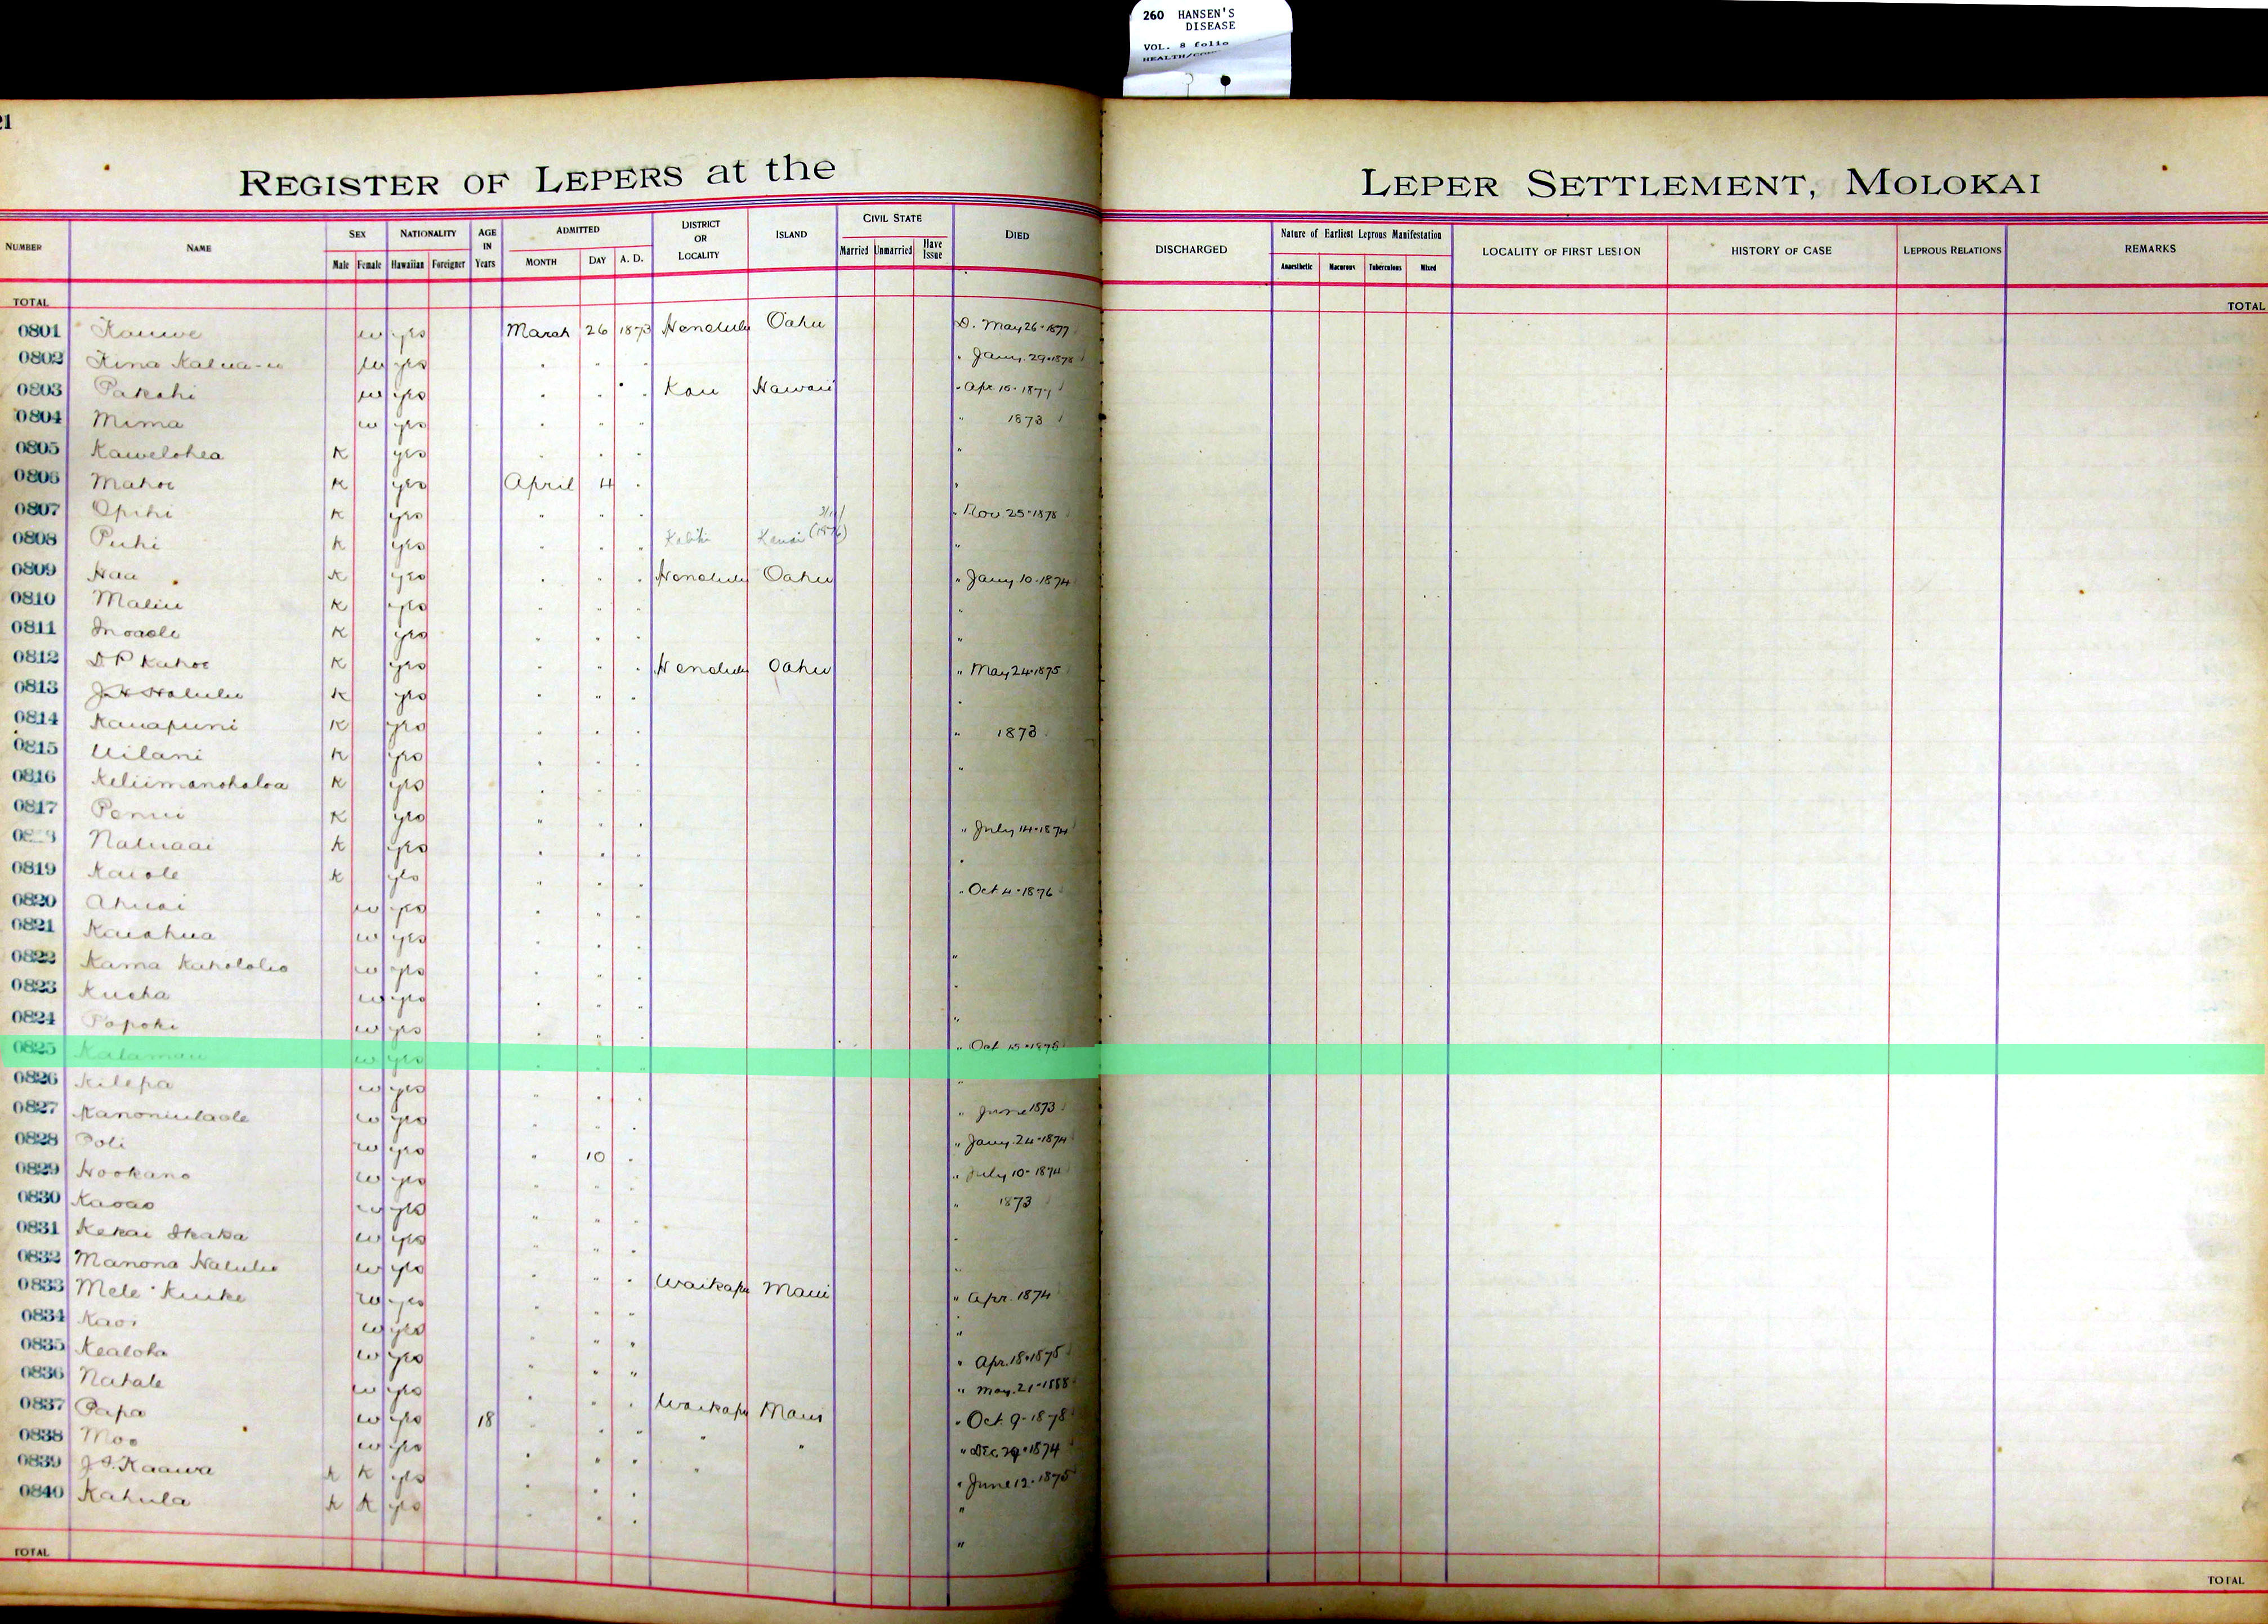 260 HANSEN'S
DISEASE
VOL. 8 folio
HEALTH/
21
REGISTER OF LEPERS at the LEPER SETTLEMENT, MOLOKAI
NUMBER NAME SEX Male Female NATIONALITY Hawaiian Foreigner AGE IN Years ADMITTED MONTH DAY A. D. DISTRICT OR LOCALITY ISLAND CIVIL STATE Married Unmarried Have Issue DIED DISCHARGED Nature of Earliest Leprous Manifestation Anaesthetic Macurous Tuberculous Mixed LOCALITY OF FIRST LESION HISTORY OF CASE LEPROUS RELATIONS REMARKS
TOTAL TOTAL
0801 Kauwe w yes March 26 1873 Honolulu Oahu D. May 26-1877
0802 Kina Kalua-u w yes " " " " Jany. 29-1878
0803 Pakahi w yes " " " Kau Hawaii " Apr 10-1877
0804 Mima w yes " " " " 1873
0805 Kawelohea K yes " " " "
0806 Mahoe K yes April 4 " "
0807 Opihi K yes " " " " Nov 25-1878
0808 Puhi K yes " " " Kauai "
0809 Haa K yes " " " Honolulu Oahu " Jany 10-1874
0810 Maliu K yes " " " "
0811 Inoaole K yes " " " "
0812 D P Kahoe K yes " " " Honolulu Oahu " May 24-1875
0813 J H Halulu K yes " " " "
0814 Kauapuni K yes " " " " 1873
0815 Uilani K yes " " " "
0816 Keliimanohaloa K yes " " "
0817 Penui K yes " " " " July 14-1874
Naluaai K yes " " " "
0819 Kaiole K yes " " " " Oct 4-1876
0820 Ahuai w yes " " "
0821 Kaiahua w yes " " " "
0822 Kama Kahololio w yes " " " "
0823 Kueha w yes " " " "
0824 Popoki w yes " " " " Oct 15-1878
0825 Kalamau w yes " " " "
0826 Kilepa w yes " " " " June 1873
0827 Kanoniulaole w yes " " " " Jany. 24-1874
0828 Poli w yes " 10 " " July 10-1874
0829 Hookano w yes " " " " 1873
0830 Kaoao w yes " " " "
0831 Kekai Ikaka w yes " " " "
0832 Manona Halulu w yes " " " Waikapu Maui " Apr. 1874
0833 Mele Kuike w yes " " " "
0834 Kaoi w yes " " " " Apr. 18-1875
0835 Kealoha w yes " " " " May. 21-1888
0836 Nahale w yes " " " Waikapu Maui " Oct. 9-1878
0837 Papa w yes 18 " " " " " " Dec 29-1874
0838 Moo w yes " " " " " June 12-1875
0839 J S. Kaawa K K yes " " " "
0840 Kahula K K yes " " " "
TOTAL TOTAL